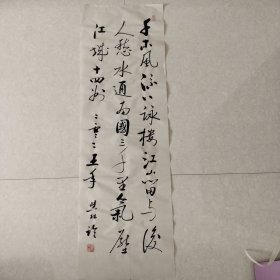 千古風流八詠樓江山留与後
人愁水通南國三千里氣壓
江城十四州 二零二五年